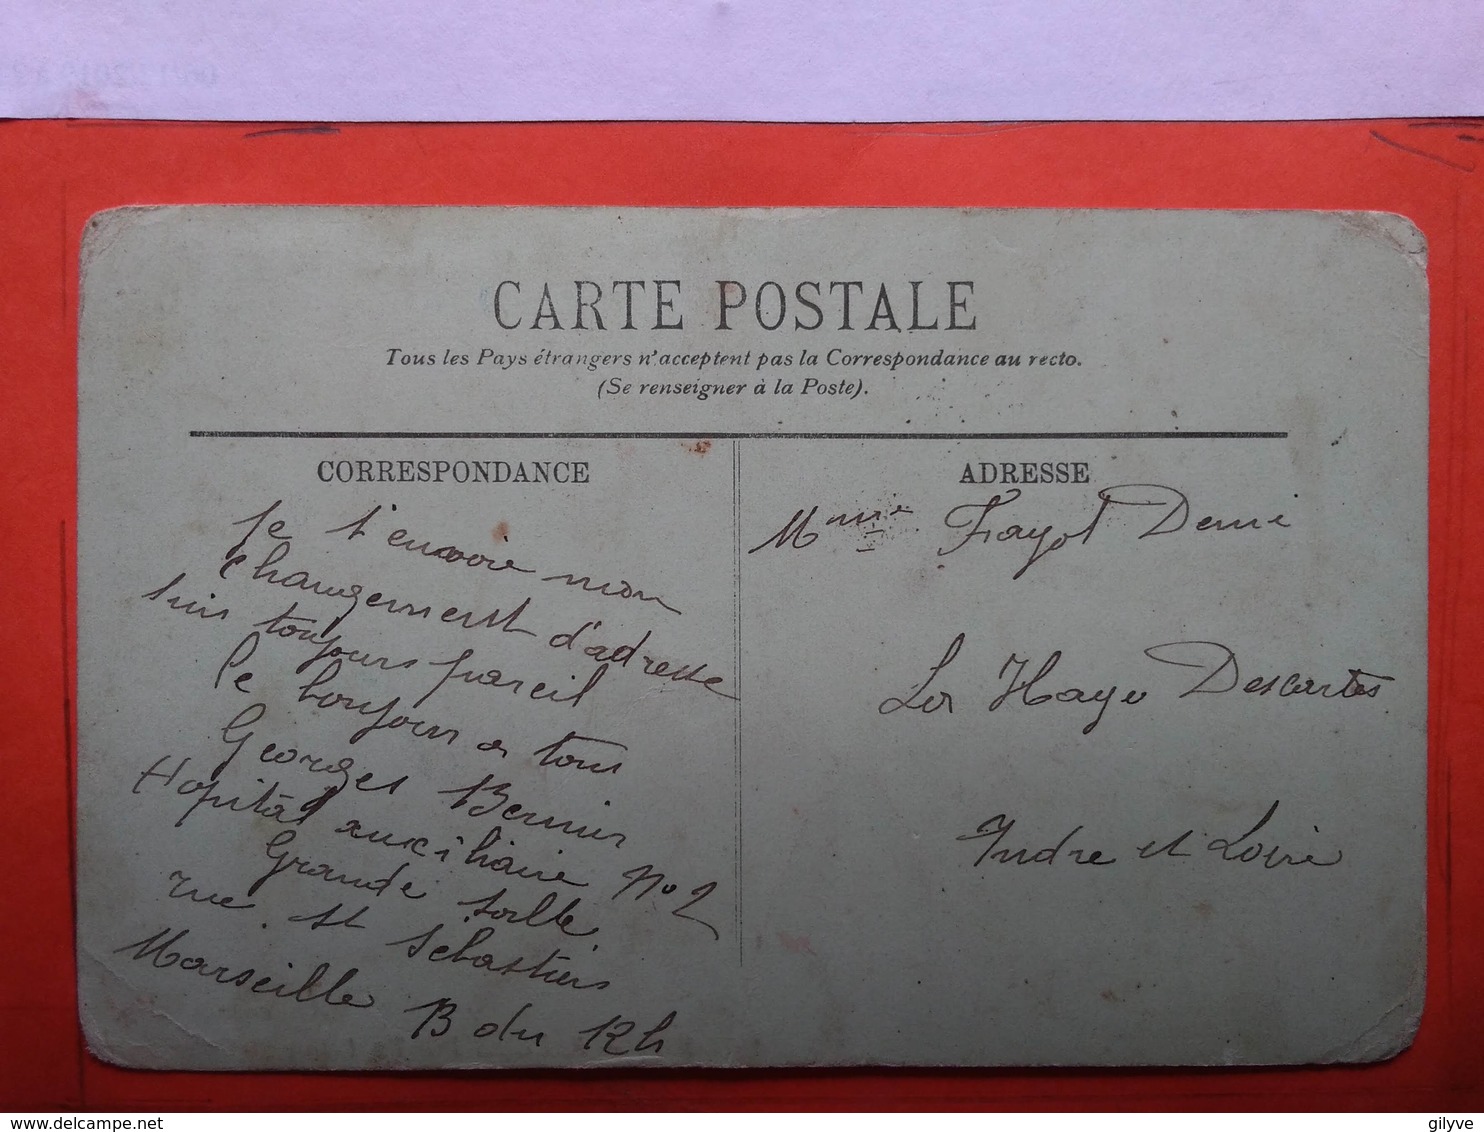 CARTE POSTALE
Tous les Pays étrangers n'acceptent pas la Correspondance au recto.
(Se renseigner à la Poste).
CORRESPONDANCE
Je t'envoie mon
changement d'adresse
suis toujours pareil
le bonjour a tous
Georges
Hopital auxiliaire No 2
Grande salle
rue St Sebastien
Marseille B du Rh
ADRESSE
Mme Fayot
La Haye Descartes
Indre et Loire
www.delcampe.net
gilyve